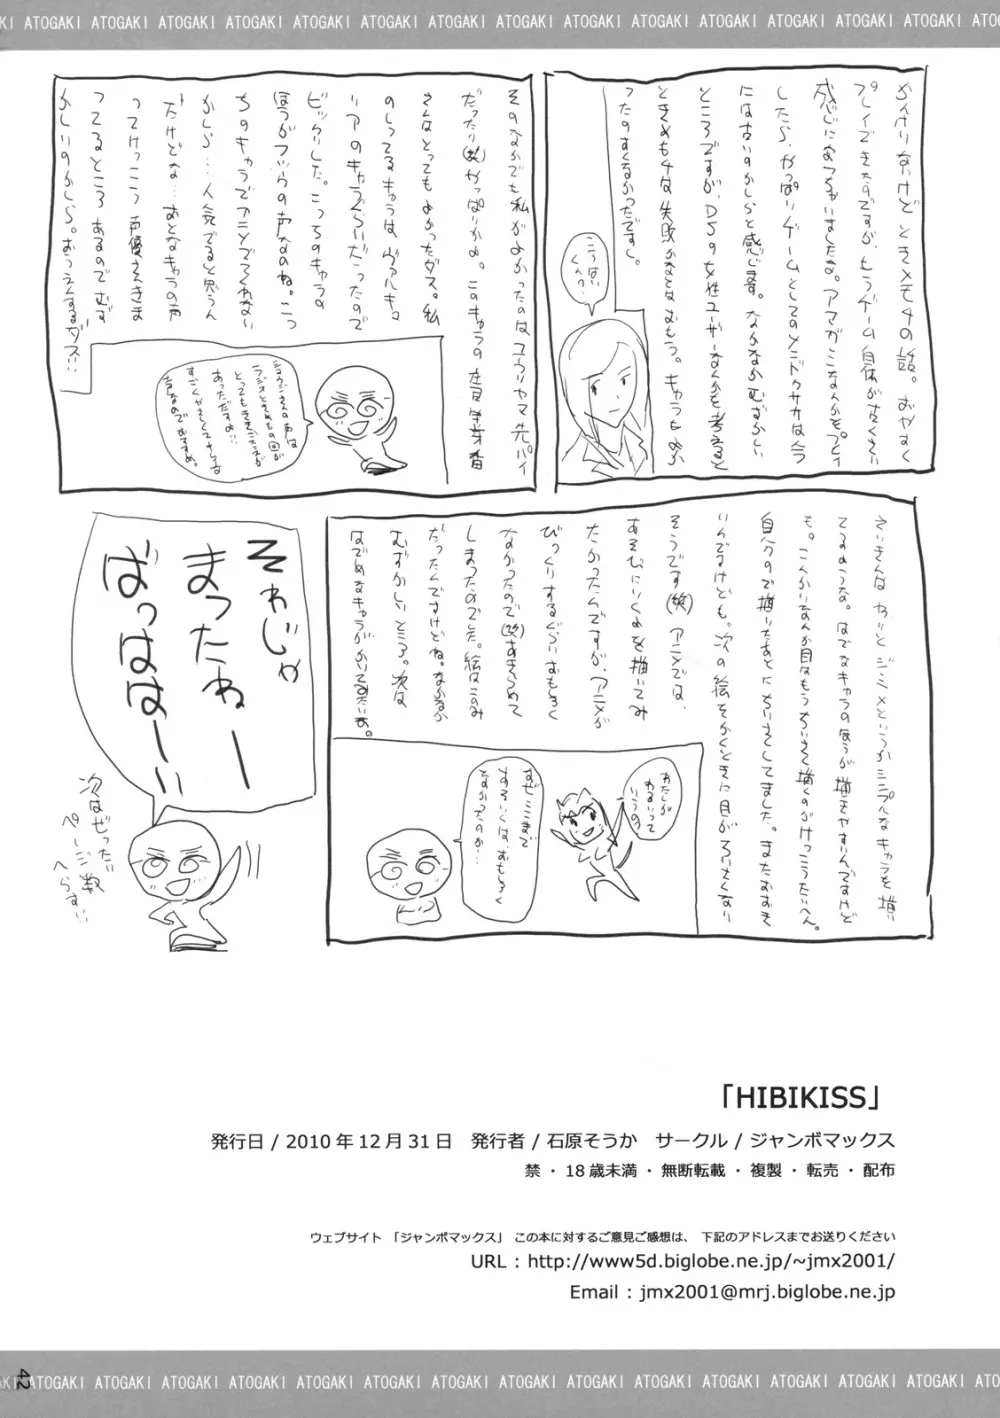 ATOGAKI ATOGAKI ATOGAKI ATOGAKI ATOGAKI ATOGAKI ATOGAKI ATOGAKI ATOGAKI ATOGAKI ATOGAKI ATOGAKI ATOGAKI ATOGAKI ATOGAKI
かんけりないけど ときメモ4の話。おやすく
プレイできたのですが、もうゲーム自体が古くさい
感じになっちゃいましたな。アマガミなんかをプレイ
したら、やっぱりゲームとしてのメンドクサさは今
には古いのかしらと感じます。なかなかむずかしい
ところですが、DSの女性ユーザーなんかを考えると
ときメモ4は失敗かなとはおもう。キャラもよか
ったのすくなかったですし。
こうはい
くんっ?
そのなかでも私がよかったのはユウリヤマ先パイ
だったり(笑)やっぱりかよ。このキャラの
さんはとってもよかったダス。私
のしってるキャラは、ヴァルキュ
リアのキャラぐらいだったので
ビックリした。こっちのキャラの
ほうがフツウの声なのね。こっ
ちのキャラでアニメでてくれない
かしら…人気でると思うん
だけどな…おとなキャラの声
ってけっこう声優さんきま
ってるところあるのでむず
かしいのかしら。おうえんするダス!!
とっても
あっただすよ!!
すごくやさしくてすてきな
声なのでおすすめ。
さいきんはわりとジミメというかシンプルなキャラを描い
てるような。はでなキャラのほうが描きやすいんですけど
も。こんかいなんか目はもうちいさく描くのがけっこうたいへん。
自分ので描いたあとにちいさくしてました。またおおき
いんですけども。次の絵をかくときに目がちいさくなり
そうです(笑)アニメでは、
あそびにいくヨを描いてみ
たかったんですが、アニメが
びっくりするぐらいおもしろく
なかったので(笑)あきらめて
しまったのでした。絵はこのみ
だったんですけどね。なかなか
むずかしいところ。次は
はでめなキャラがかいてみたいよ。
わたしが
わるいって
いうの?
なぜここまで
するいくは、おもしろく
なかったのか…
それじゃ
まったねー
ばっはは〜い!!
次はぜったい
ページ数
へらす!!
「HIBIKISS」
発行日 / 2010 年 12 月 31 日　発行者 / 石原そうか　サークル / ジャンボマックス
禁 ・ 18 歳未満 ・ 無断転載 ・ 複製 ・ 転売 ・ 配布
ウェブサイト 「ジャンボマックス」 この本に対するご意見ご感想は、 下記のアドレスまでお送りください
URL : http://www5d.biglobe.ne.jp/~jmx2001/
Email : jmx2001@mrj.biglobe.ne.jp
42
ATOGAKI ATOGAKI ATOGAKI ATOGAKI ATOGAKI ATOGAKI ATOGAKI ATOGAKI ATOGAKI ATOGAKI ATOGAKI ATOGAKI ATOGAKI ATOGAKI ATOGAKI